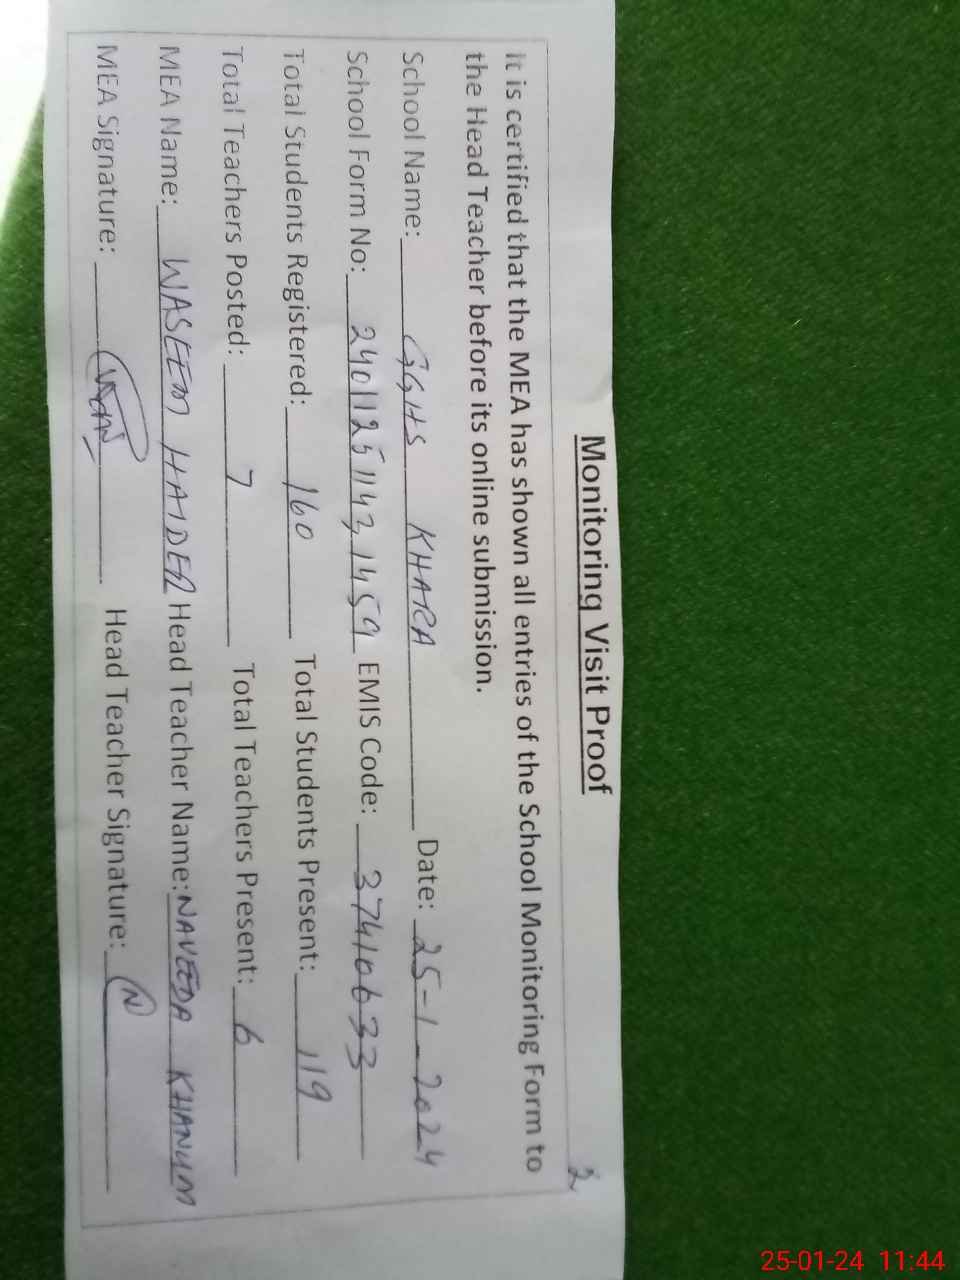 2
Monitoring Visit Proof
It is certified that the MEA has shown all entries of the School Monitoring Form to
the Head Teacher before its online submission.
School Name: GGHS KHARA Date: 25-1-2024
School Form No: 2401125114321459 EMIS Code: 37410633
Total Students Registered: 160 Total Students Present: 119
Total Teachers Posted: 7 Total Teachers Present: 6
MEA Name: WASEEM HAIDER Head Teacher Name: NAVEEDA KHANUM
MEA Signature: Head Teacher Signature: N
25-01-24 11:44